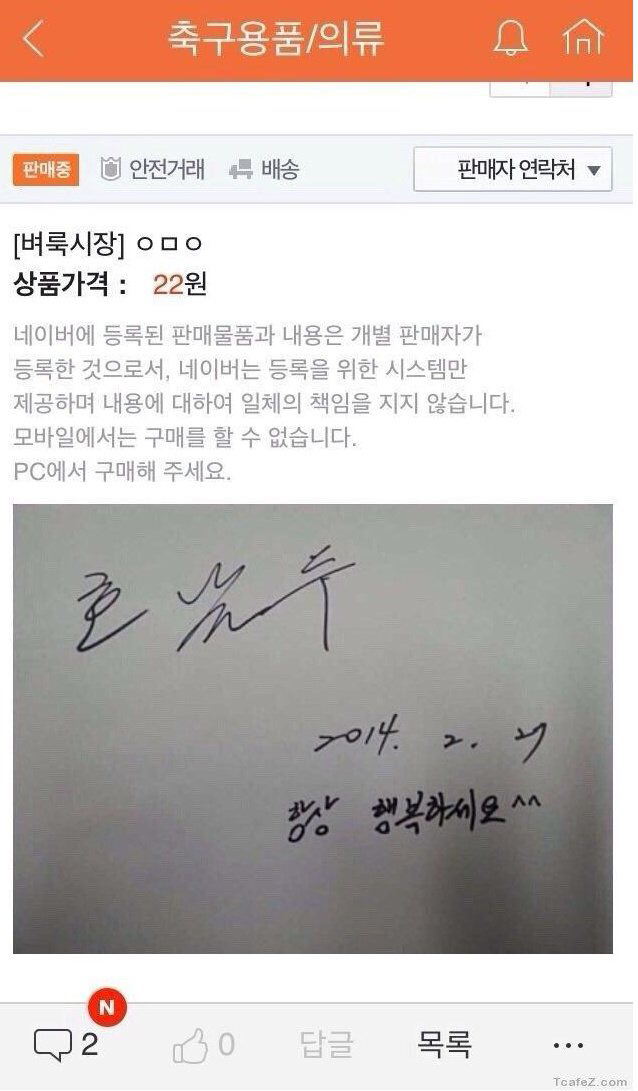 축구용품/의류
판매중 안전거래 배송 판매자 연락처
[벼룩시장] ㅇㅁㅇ
상품가격 : 22원
네이버에 등록된 판매물품과 내용은 개별 판매자가
등록한 것으로서, 네이버는 등록을 위한 시스템만
제공하며 내용에 대하여 일체의 책임을 지지 않습니다.
모바일에서는 구매를 할 수 없습니다.
PC에서 구매해 주세요.
2014. 2. 27
항상 행복하세요^^
N
2 0 답글 목록 ...
TcafeZ.com